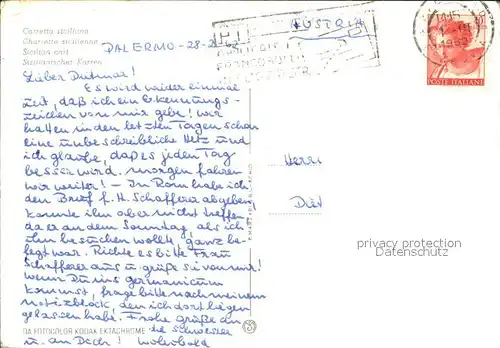 Carretto siciliano
Charrette sicilienne
Sicilian cart
Sizilianischer Karren
AUSTRIA
PALERMO - 28-
Lieber Dietmar!
Es wird wieder einmal
Zeit, daß ich ein Erkennungs-
zeichen von mir gebe! Wir
hatten in den letzten Tagen schon
eine unbeschreibliche Hetz und
ich glaube, daß es jeden Tag
besser wird. Morgen fahren
wir weiter! - In Rom habe ich
den Brief f. H. Schafferer abgeben,
konnte ihn aber nicht treffen,
da er an dem Sonntag, als ich
ihn besuchen wollte, ganz be-
legt war. Richte es bitte Frau
Schafferer aus u. grüße sie von mir!
Wenn Du ins Germanicum
kommst, frage bitte nach meinem
Notizblock, den ich dort liegen
gelassen habe. Frohe Grüße an
die Schwester
u. an Dich!
Herrn
privacy protection
Datenschutz
DA FOTOCOLOR KODAK EKTACHROME
POSTE ITALIANE